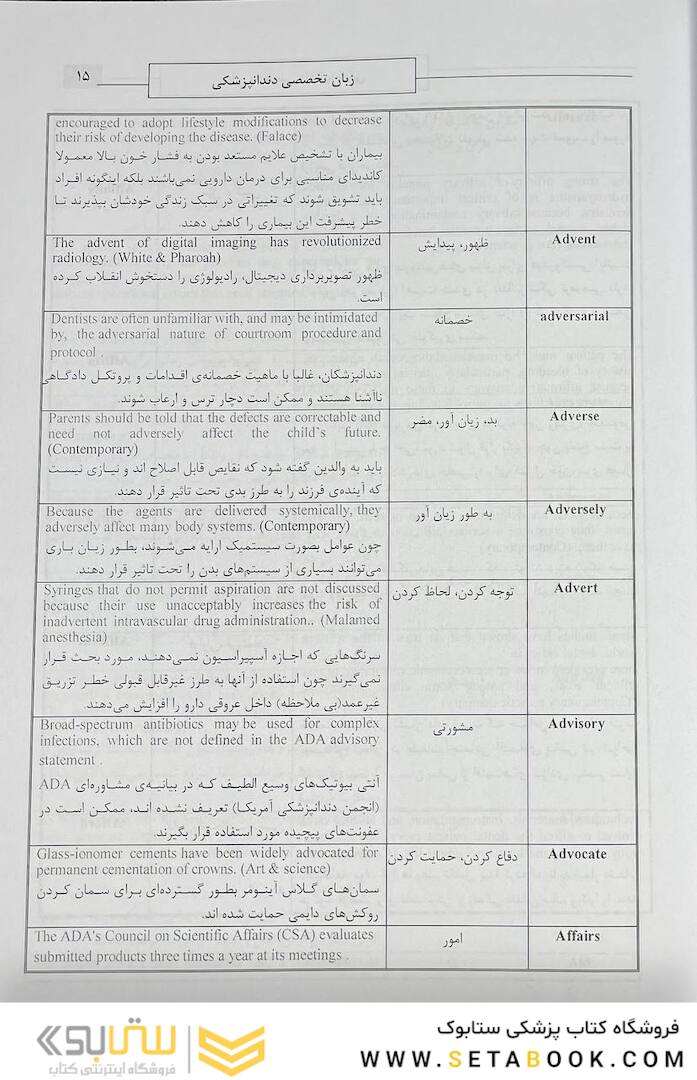 ۱۵
زبان تخصصی دندانپزشکی
encouraged to adopt lifestyle modifications to decrease
their risk of developing the disease. (Falace)
بیماران با تشخیص علایم مستعد بودن به فشار خون بالا معمولا
کاندیدای مناسبی برای درمان دارویی نمی‌باشند بلکه اینگونه افراد
باید تشویق شوند که تغییراتی در سبک زندگی خودشان بپذیرند تا
خطر پیشرفت این بیماری را کاهش دهند.
The advent of digital imaging has revolutionized
radiology. (White & Pharoah)
ظهور تصویربرداری دیجیتال، رادیولوژی را دستخوش انقلاب کرده
است.
ظهور، پیدایش
Advent
Dentists are often unfamiliar with, and may be intimidated
by, the adversarial nature of courtroom procedure and
protocol .
دندانپزشکان، غالبا با ماهیت خصمانه‌ی اقدامات و پروتکل دادگاهی
ناآشنا هستند و ممکن است دچار ترس و ارعاب شوند.
خصمانه
adversarial
Parents should be told that the defects are correctable and
need not adversely affect the child's future.
(Contemporary)
باید به والدین گفته شود که نقایص قابل اصلاح اند و نیازی نیست
که آینده‌ی فرزند را به طرز بدی تحت تاثیر قرار دهند.
بد، زیان آور، مضر
Adverse
Because the agents are delivered systemically, they
adversely affect many body systems. (Contemporary)
چون عوامل بصورت سیستمیک ارایه می‌شوند، بطور زیان باری
می‌توانند بسیاری از سیستم‌های بدن را تحت تاثیر قرار دهند.
به طور زیان آور
Adversely
Syringes that do not permit aspiration are not discussed
because their use unacceptably increases the risk of
inadvertent intravascular drug administration.. (Malamed
anesthesia)
سرنگ‌هایی که اجازه آسپیراسیون نمی‌دهند، مورد بحث قرار
نمی‌گیرند چون استفاده از آنها به طرز غیرقابل قبولی خطر تزریق
غیرعمد(بی ملاحظه) داخل عروقی دارو را افزایش می‌دهند.
توجه کردن، لحاظ کردن
Advert
Broad-spectrum antibiotics may be used for complex
infections, which are not defined in the ADA advisory
statement .
آنتی بیوتیک‌های وسیع الطیف که در بیانیه‌ی مشاوره‌ای ADA
(انجمن دندانپزشکی آمریکا) تعریف نشده اند، ممکن است در
عفونت‌های پیچیده مورد استفاده قرار بگیرند.
مشورتی
Advisory
Glass-ionomer cements have been widely advocated for
permanent cementation of crowns. (Art & science)
سمان‌های گلاس آینومر بطور گسترده‌ای برای سمان کردن
روکش‌های دایمی حمایت شده اند.
دفاع کردن، حمایت کردن
Advocate
The ADA's Council on Scientific Affairs (CSA) evaluates
submitted products three times a year at its meetings .
امور
Affairs
فروشگاه کتاب پزشکی ستابوک
WWW.SETABOOK.COM
ستابوک
فروشگاه اینترنتی کتاب